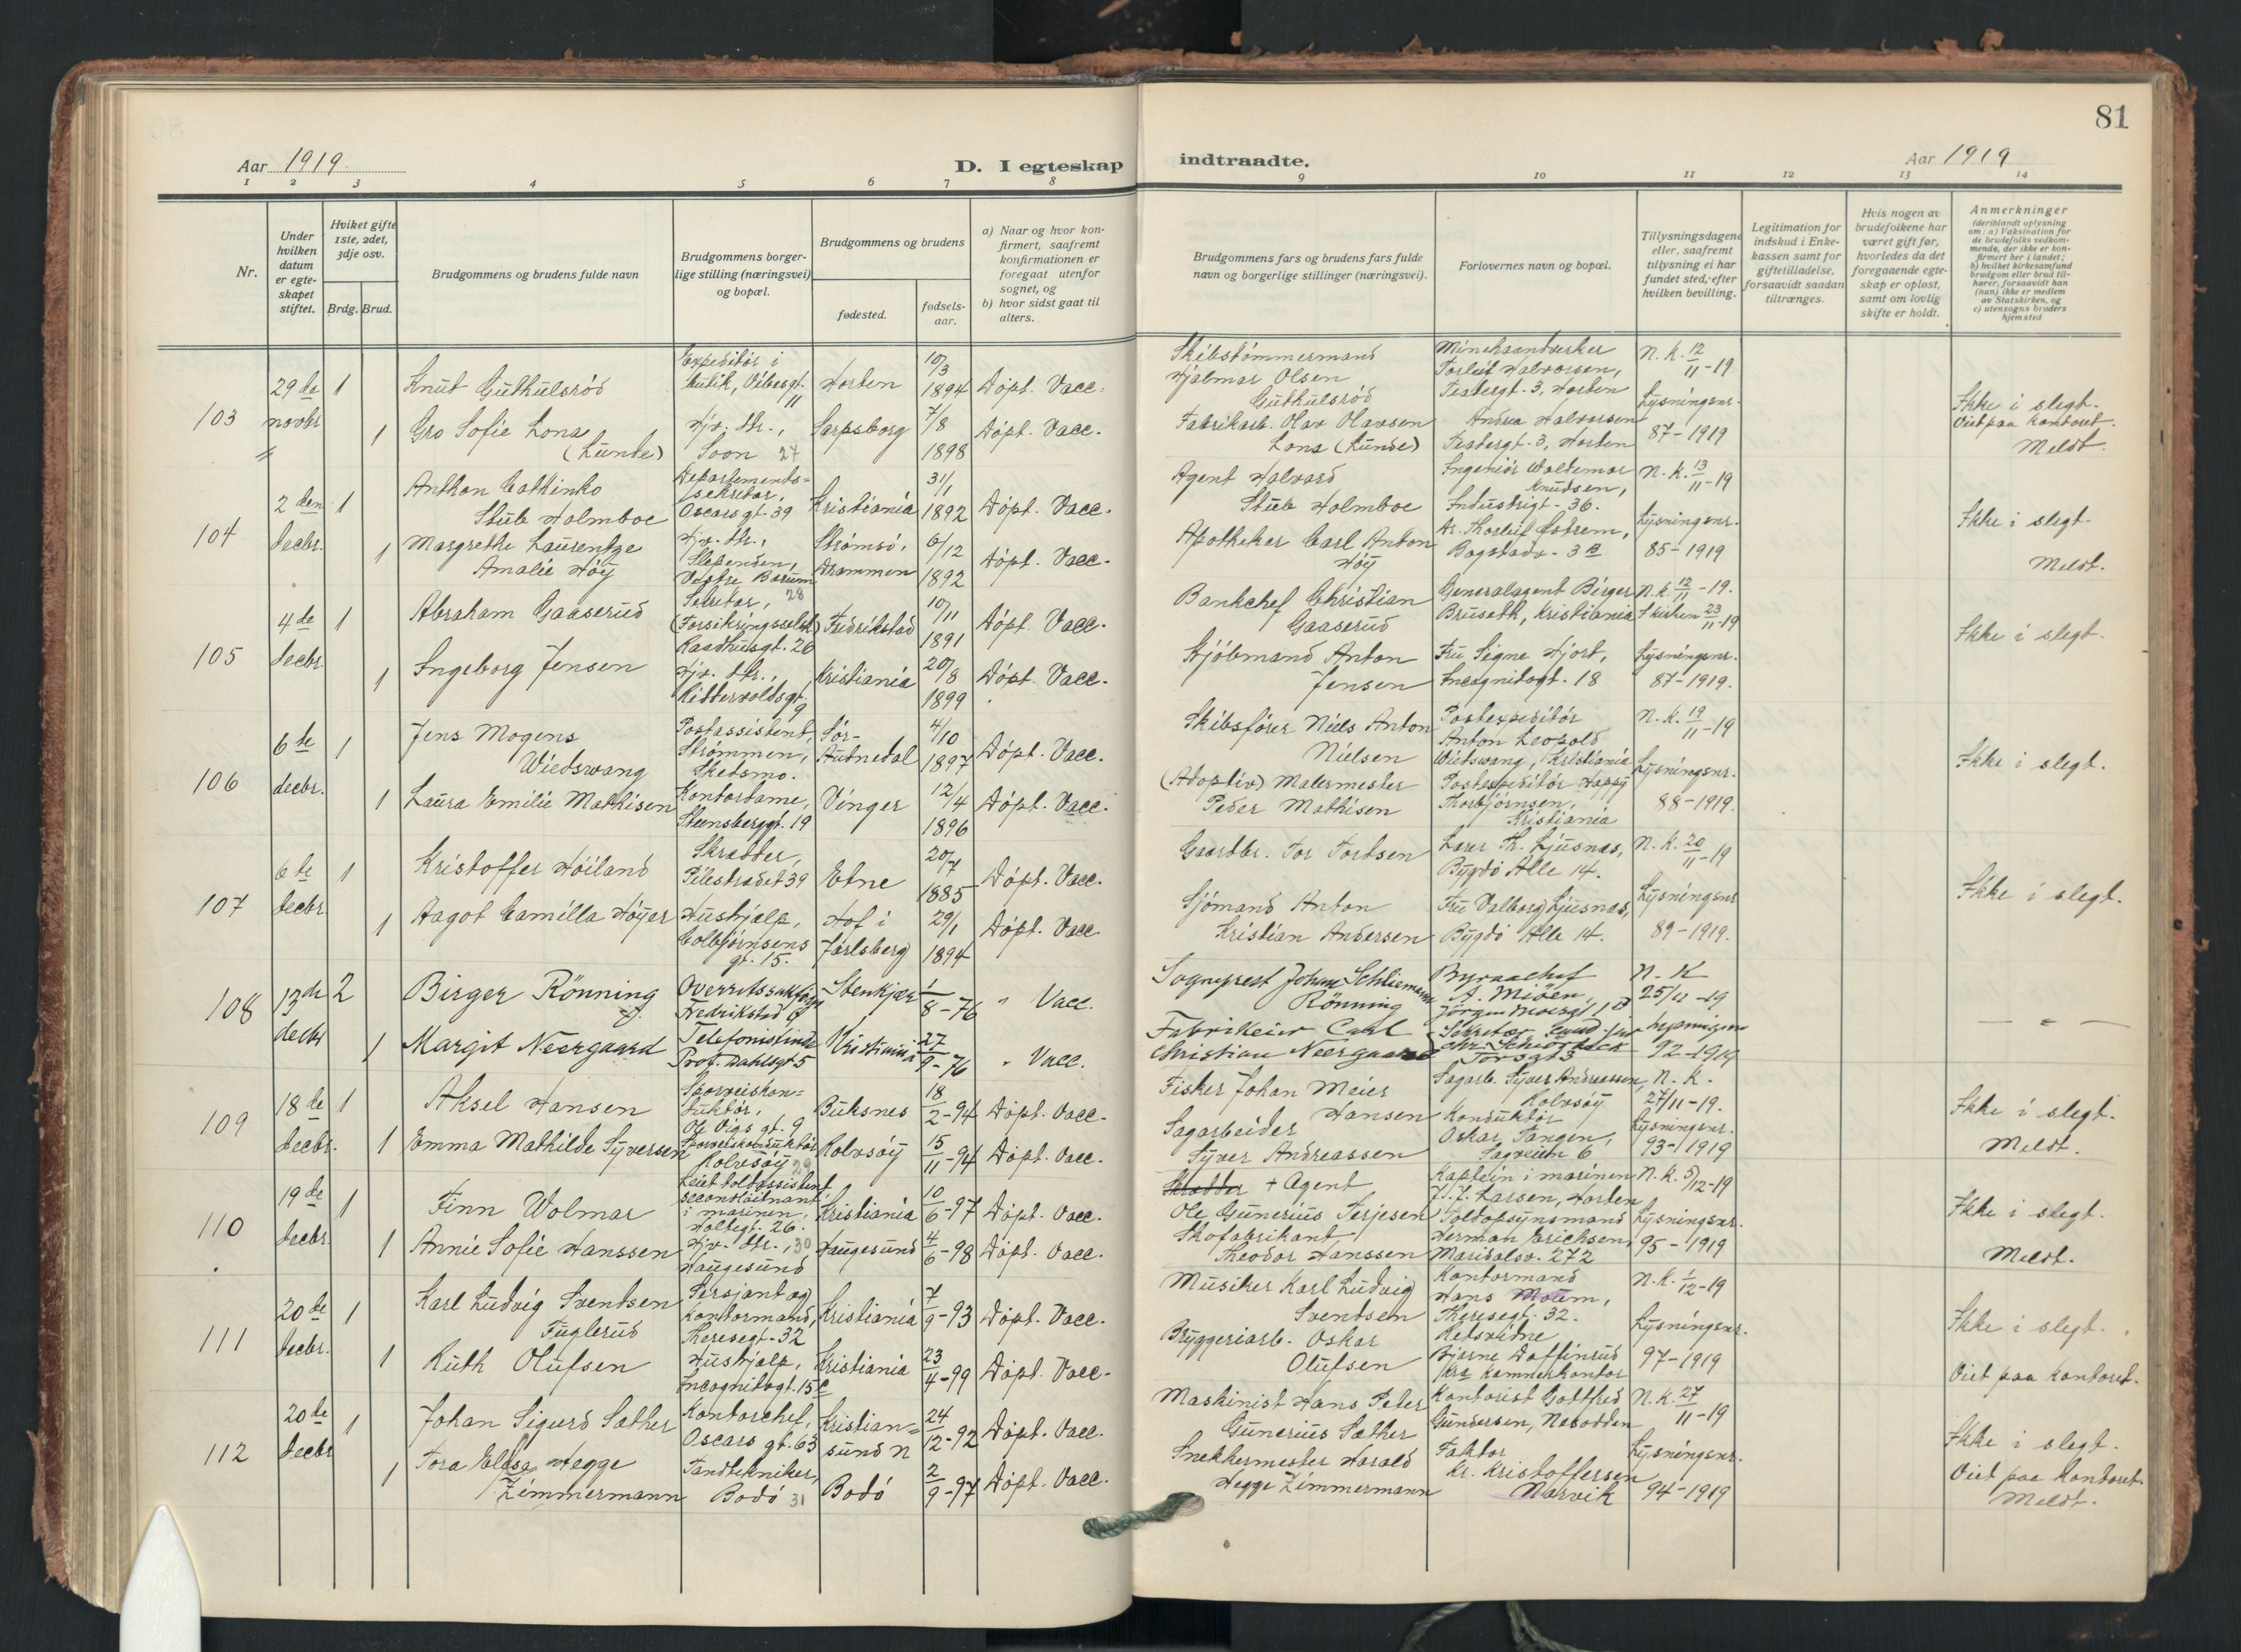 81
Aar 1919.
D. I egteskap
indtraadte.
Aar 1919
1 2 3 4 5 6 7 8
9 10 11 12 13 14
Nr.
Under hvilken datum er egteskapet stiftet.
Hvilket gifte 1ste, 2det, 3dje osv.
Brdg. Brud.
Brudgommens og brudens fulde navn
Brudgommens borgerlige stilling (næringsvei) og bopæl.
Brudgommens og brudens
fødested.
fødselsaar.
a) Naar og hvor konfirmert, saafremt konfirmationen er foregaat utenfor sognet, og
b) hvor sidst gaat til alters.
Brudgommens fars og brudens fars fulde navn og borgerlige stillinger (næringsvei).
Forlovernes navn og bopæl.
Tillysningsdagene eller, saafremt tillysning ei har fundet sted, efter hvilken bevilling.
Legitimation for indskud i Enkekassen samt for giftetilladelse, forsaavidt saadan tiltrænges.
Hvis nogen av brudefolkene har været gift før, hvorledes da det foregaaende egteskap er opløst, samt om lovlig skifte er holdt.
Anmerkninger
(deriblandt oplysning om: a) Vaksination for de brudefolks vedkommende, der ikke er konfirmert her i landet; b) hvilket kirkesamfund brudgom eller brud tilhører, forsaavidt han (hun) ikke er medlem av Statskirken, og c) utensogns bruders hjemsted
103
29de novbr
1
Knut Guthulsrød
Expeditør i butik, Vibesgt. 11
Horten
10/3 1894
Døpt. Vacc.
Skibstømmermand Hjalmar Olsen Guthulsrød
Torleif Halvorsen, Teatergt. 3, Horten
N. K. 12/11-19
Ikke i slegt.
Viet paa kontoret.
1
Gro Sofie Lona (Lunde)
Hjv. dtr., Soon 27
Sarpsborg
7/8 1898
Døpt. Vacc.
Fabrikarb. Olav Olavsen Lona (Lunde)
Andrea Halvorsen Teatergt. 3, Horten
Lysningsnr. 87-1919
Meldt.
104
2den decbr.
1
Anthon Cathinko Stub Holmboe
Departementssekretær, Oscarsgt. 39
Kristiania
31/1 1892
Døpt. Vacc.
Agent Halvard Stub Holmboe
Ingeniør Waldemar Knudsen, Industrigt. 36.
N. K. 13/11-19
Ikke i slegt.
1
Margrethe Laurentze Amalie Høy
Hjv. dtr., Slependen, Vestre Bærum 28
Strømsø, Drammen
6/12 1892
Døpt. Vacc.
Apotheker Carl Anton Høy
Dr. Thorleif Østrem, Bogstadv. 3 B
Lysningsnr. 85-1919
Meldt.
105
4de decbr.
1
Abraham Gaaserud
Sekretær, (Forsikringsselsk.) Raadhusgt. 26
Fredrikstad
10/11 1891
Døpt. Vacc.
Bankchef Christian Gaaserud
Generalagent Birger Bruseth, Kristiania
N. K. 12/11-19. I kirken 23/11-19
Ikke i slegt.
1
Ingeborg Jensen
Hjv. dtr., Riddervoldsgt. 9
Kristiania
20/8 1899
Døpt. Vacc.
Kjøbmand Anton Jensen
Fru Signe Hjort, Incognitogt. 18
Lysningsnr. 87-1919.
106
6te decbr.
1
Jens Mogens Wiedswang
Postassistent, Strømmen, Skedsmo.
Sør-Audnedal
4/10 1897
Døpt. Vacc.
Skibsfører Niels Anton Nielsen
Postexpeditør Anton Leopold Wiedswang, Kristiania
N. K. 19/11-19
Ikke i slegt.
1
Laura Emilie Mathisen
Kontordame, Steensberggt. 19
Vinger
12/4 1896
Døpt. Vacc.
(Adoptiv) Malermester Peder Mathisen
Postexpeditør Happy Thorbjørnsen, Kristiania
Lysningsnr. 88-1919.
107
6te decbr.
1
Kristoffer Høiland
Skrædder, Pilestrædet 39
Etne
20/7 1885
Døpt. Vacc.
Gaardbr. Tor Tordsen
Lærer Th. Ljusnæs, Bygdø Alle 14.
N. K. 20/11-19
Ikke i slegt.
1
Aagot Camilla Høyer
Hushjælp, Colbjørnsens gt. 15.
Hof i Jarlsberg
29/1 1894
Døpt. Vacc.
Sjømand Anton Kristian Andersen
Fru Valborg Ljusnæs, Bygdø Alle 14.
Lysningsnr. 89-1919.
108
13de decbr
2
Birger Rönning
Overretssakfører Fredrikstad
Stenkjær
1/8-76
" Vacc.
Sogneprest Johan Schliemann Rönning
Byraachef A. Miöen,
N. K 25/11-19
— " —
1
Margit Neergaard
Telefonistinde Prof. Dahlsgt 5
Kristiania
27/9-76
" Vacc.
Fabrikeier Carl Christian Neergaard
Torsgt 3
lysningsnr 92-1919
109
18de decbr.
1
Aksel Hansen
Sporveiskonduktør, Ole Vigs gt. 9
Buksnes
18/2-94
Døpt. Vacc.
Fisker Johan Meier Hansen
Sagarb. Syver Andreassen, Rolvsøy
N. K. 27/11-19.
Ikke i slegt.
1
Emma Mathilde Syversen
Sporveiskonduktør, Rolvsøy 29
Rolvsøy
15/11-94
Døpt. Vacc.
Sagarbeider Syver Andreassen
Konduktør Oskar Tangen, Sagveien 6
Lysningsnr. 93-1919
Meldt.
110
19de decbr.
1
Finn Wolmar
secondløitnant i marinen, Holtegt. 26.
Kristiania
10/6-97
Døpt. Vacc.
Skrædder + Agent Ole Gunerius Terjesen
Kaptein i marinen J. J. Larsen, Horten
N. K. 5/12-19
Ikke i slegt.
1
Annie Sofie Hanssen
Hjv. dtr., 30 Haugesund
Haugesund
4/6-98
Døpt. Vacc.
Skofabrikant Theodor Hanssen
Toldopsynsmand Herman Erichsen, Maridalsv. 272
Lysningsnr. 95-1919
Meldt.
111
20de decbr.
1
Karl Ludvig Svendsen Fuglerud
Sersjant og kontormand, Theresegt. 32
Kristiania
7/9-93
Døpt. Vacc.
Musiker Karl Ludvig Svendsen
Kontormand Hans Moum, Theresegt. 32.
N. K. 1/12-19
Ikke i slegt.
1
Ruth Olufsen
Hushjælp, Incognitogt. 15 c
Kristiania
23/4-99
Døpt. Vacc.
Bryggeriarb. Oskar Olufsen
Retsvidne Bjarne Daffinrud Kra Kæmnerkontor
Lysningsnr. 97-1919
Viet paa kontoret.
112
20de decbr
1
Johan Sigurd Sæther
Kontorchef, Oscars gt. 63
Kristiansund N
24/12-92
Døpt. Vacc.
Maskinist Hans Peter Gunerius Sæther
Kontorist Gottfred Gundersen, Nesodden
N. K. 27/11-19
Ikke i slegt.
1
Tora Elisa Hegge Zimmermann
Tandtekniker, Bodø 31
Bodø
2/9-97
Døpt. Vacc.
Snekkermester Harald Hegge Zimmermann
Faktor Kr. Kristoffersen Narvik
Lysningsnr. 94-1919
Viet paa kontoret.
Meldt.